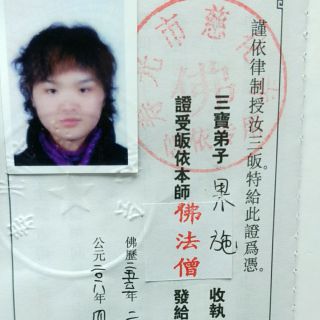 謹依律制授汝三皈。特給此證爲憑。
三寶弟子 果施 收執
證受皈依本師 佛法僧 發給
佛歷 年 二
公元二〇八年 四
市慈